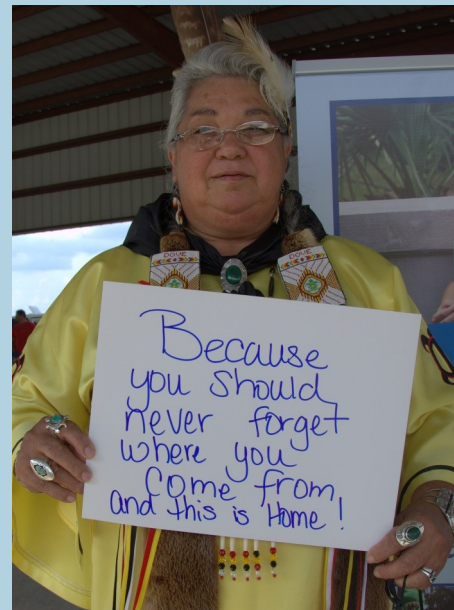 DOVE DOVE
Because
you should
never forget
where you
come from
and this is Home!